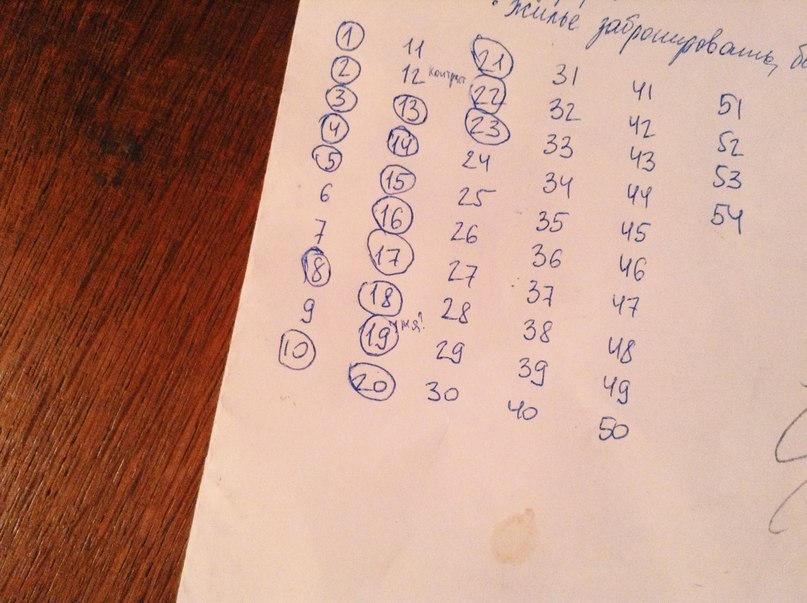 жилье забронировать,
1 11 21 31 41 51
2 12 22 32 42 52
3 13 23 33 43 53
4 14 24 34 44 54
5 15 25 35 45
6 16 26 36 46
7 17 27 37 47
8 18 28 38 48
9 19 29 39 49
10 20 30 40 50